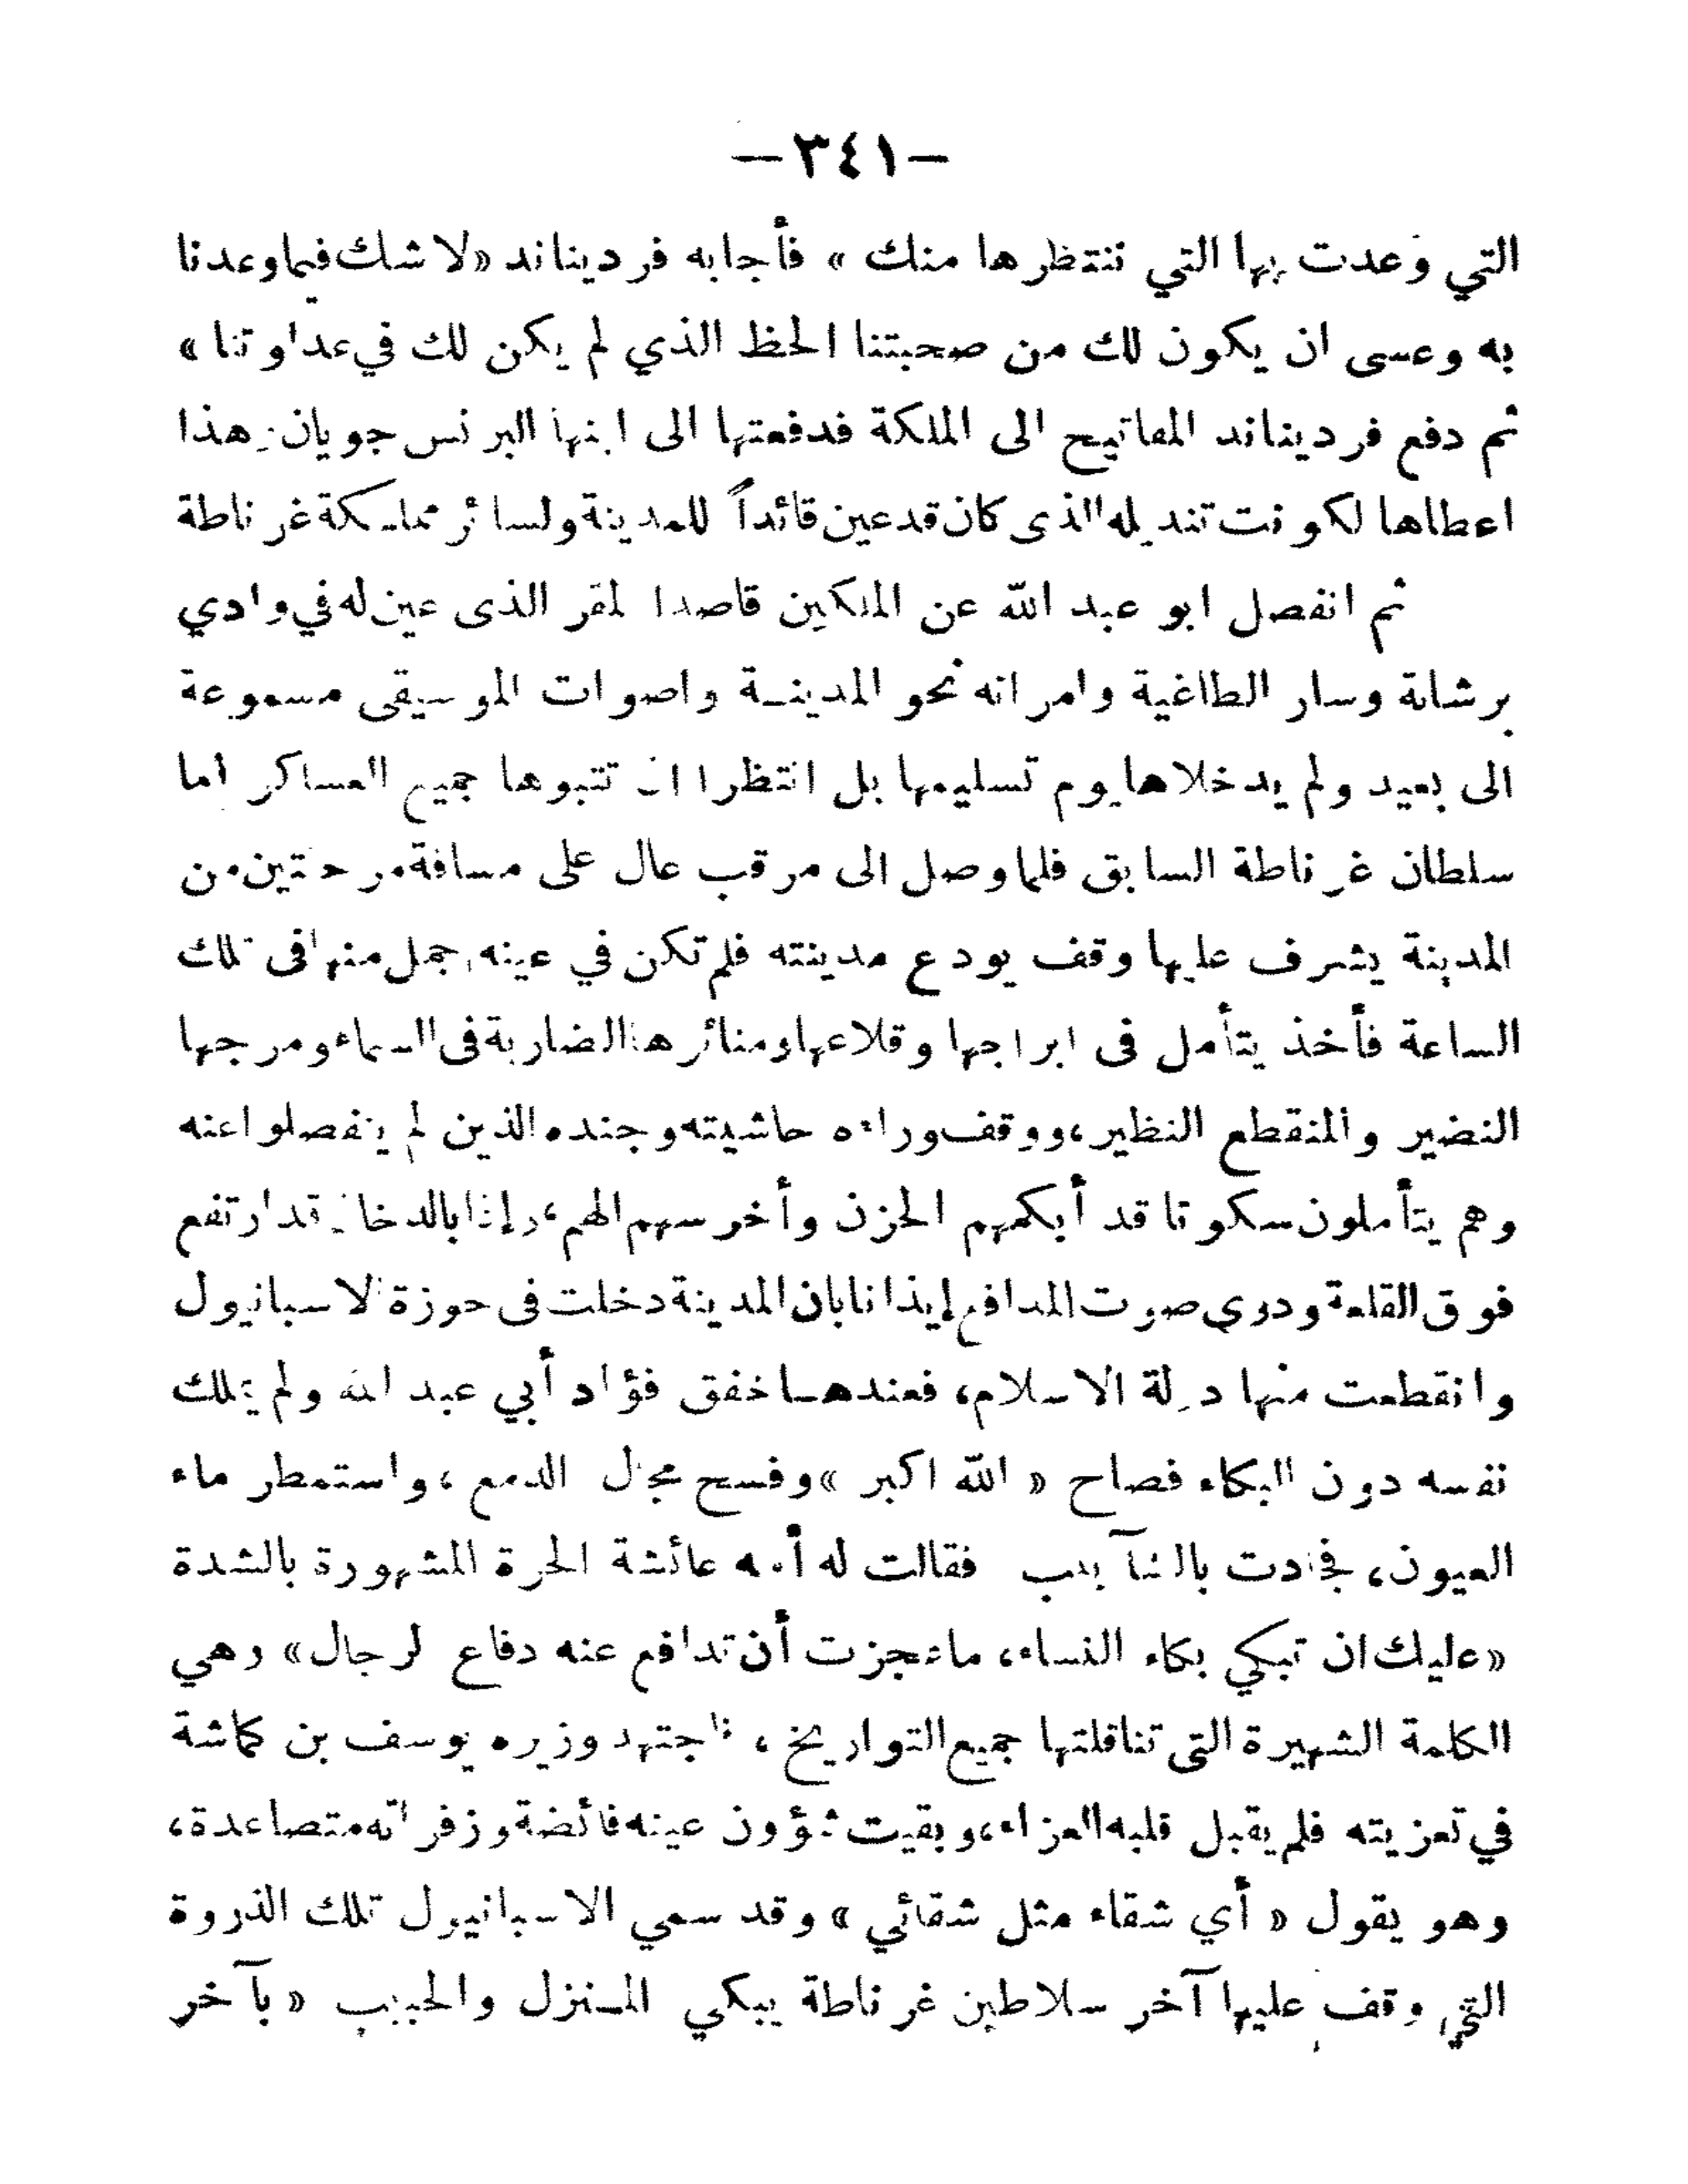 —٣٤١—
التي وعدت بها التي ننتظرها منك » فأجابه فرديناند «لا شك فيما وعدنا
به وعسى ان يكون لك من صحبتنا الحظ الذي لم يكن لك في عداوتنا »
ثم دفع فرديناند المفاتيح الى الملكة فدفعتها الى ابنها البرنس جويان وهذا
اعطاها لكونت تنديله الذى كان قد عين قائداً للمدينة ولسائر مملكة غرناطة
ثم انفصل ابو عبد الله عن الملكين قاصدا لمقر الذى عين له في وادي
برشانة وسار الطاغية وامرانه نحو المدينة واصوات الموسيقى مسموعة
الى بعيد ولم يدخلاها يوم تسليمها بل انتظرا ان تتبوها جميع العساكر اما
سلطان غرناطة السابق فلما وصل الى مرقب عال على مسافة مرحلتين من
المدينة يشرف عليها وقف يودع مدينته فلم تكن في عينه اجمل منها فى تلك
الساعة فأخذ يتأمل فى ابراجها وقلاعها ومنائرها الضاربة فى السماء ومرجها
النضير والمنقطع النظير، ووقف وراءه حاشيته وجنده الذين لم ينفصلوا عنه
وهم يتأملون سكوتا قد أبكمهم الحزن وأخرسهم الهم، وإذا بالدخان قد ارتفع
فوق القلعة ودوي صوت المدافع إيذانا بان المدينة دخلت فى حوزة الاسبانيول
وانقطعت منها دولة الاسلام، فعندها خفق فؤاد أبي عبد الله ولم يملك
نفسه دون البكاء فصاح « الله اكبر » وفسح مجال الدمع ، واستمطر ماء
العيون، فجادت بالشآبيب فقالت له أمه عائشة الحرة المشهورة بالشدة
«عليك ان تبكي بكاء النساء، ما عجزت أن تدافع عنه دفاع لرجال» وهي
الكلمة الشهيرة التى تناقلتها جميع التواريخ ، فاجتهد وزيره يوسف بن كماشة
في تعزيته فلم يقبل قلبه العزاء، وبقيت شؤون عينه فائضة وزفراته متصاعدة،
وهو يقول « أي شقاء مثل شقائي » وقد سمي الاسبانيول تلك الذروة
التي وقف عليها آخر سلاطين غرناطة يبكي المنزل والحبيب « بآخر